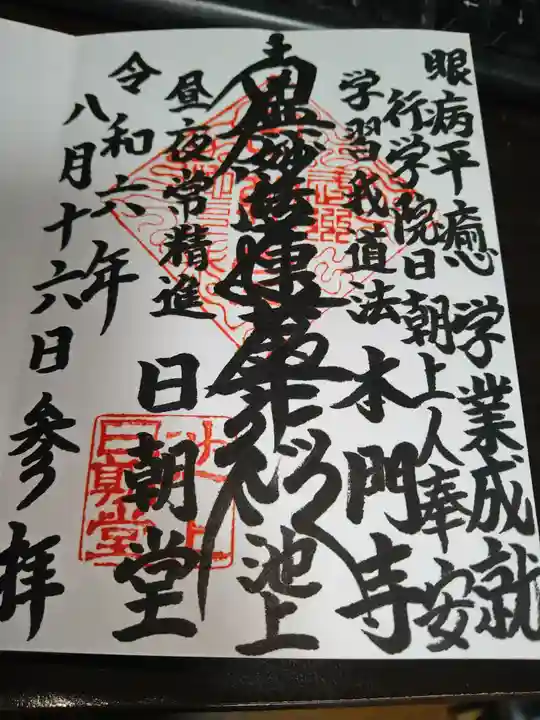 眼病平癒 学業成就
行学院日朝上人奉安
学習我道法 本門寺
南無妙法蓮華経 池上
昼夜常精進 日朝堂
令和六年
八月十六日 参拝
池上
日朝堂